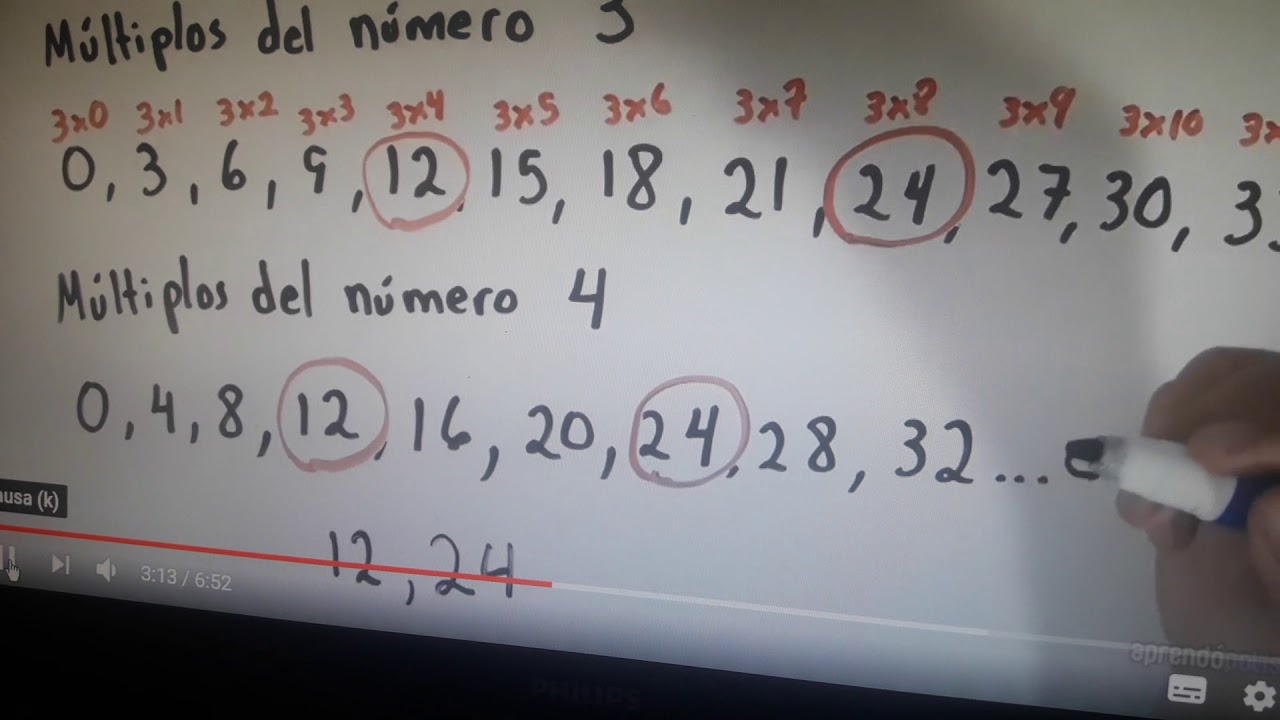 Múltiplos del número 3
3x0 3x1 3x2 3x3 3x4 3x5 3x6 3x7 3x8 3x9 3x10
0, 3, 6, 9, 12, 15, 18, 21, 24, 27, 30,
Múltiplos del número 4
0, 4, 8, 12, 16, 20, 24, 28, 32 ...
usa (k)
12, 24
3:13 / 6:52
aprendópolis
PHILIPS